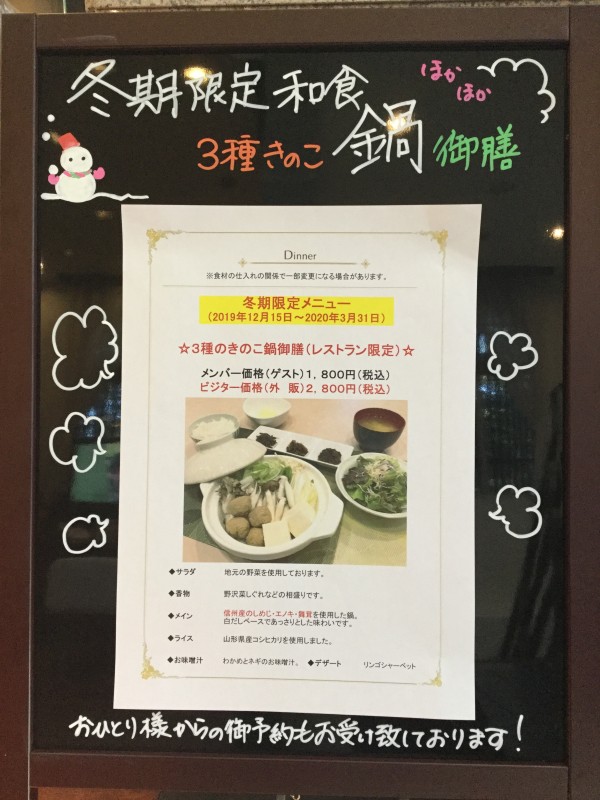 冬期限定 和食
ほか
ほか
3種きのこ 鍋 御膳
Dinner
※食材の仕入れの関係で一部変更になる場合があります。
冬期限定メニュー
(2019年12月15日~2020年3月31日)
☆3種のきのこ鍋御膳(レストラン限定)☆
メンバー価格(ゲスト)1,800円(税込)
ビジター価格(外 販)2,800円(税込)
◆サラダ 地元の野菜を使用しております。
◆香物 野沢菜しぐれなどの相盛りです。
◆メイン 信州産のしめじ・エノキ・舞茸を使用した鍋。
白だしベースであっさりとした味わいです。
◆ライス 山形県産コシヒカリを使用しました。
◆お味噌汁 わかめとネギのお味噌汁。 ◆デザート リンゴシャーベット
おひとり様からの御予約もお受け致しております!